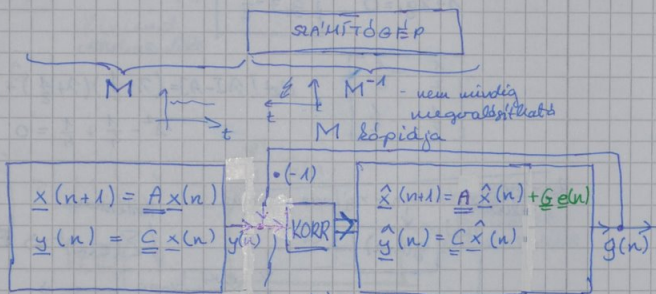 SZÁMÍTÓGÉP
M
M⁻¹ - nem mindig
megvalósítható
t
t
M kópiája
•(-1)
x(n+1) = A x(n)
y(n) = C x(n)
y(n)
KORR
x̂(n+1) = A x̂(n) + G e(n)
ŷ(n) = C x̂(n)
ŷ(n)